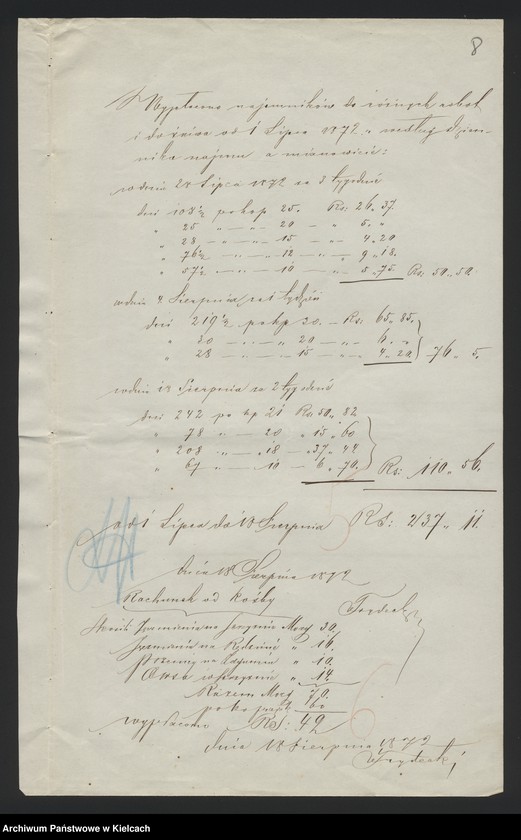 8
Wypłacono najemników do różnych robot
i do żniwa od 1 Lipca 1872 r. według dzien-
nika najmu a mianowicie:
w dniu 28 Lipca 1872 za 3 tygodnie
dni 105½ po kop 25. Rs: 26 „ 37.
„ 25 „ — 20 — „ 5 „ „
„ 28 — „ — 15 — „ 4 „ 20
„ 76½ — „ — 12 — „ 9 „ 18.
„ 57½ — „ — 10 — „ 5 „ 75. Rs: 50 „ 50.
w dniu 4 Sierpnia za 1 tydzień
dni 219½ po kop 30. — Rs: 65 „ 85.
„ 30 — „ — 20 — „ 6 „ „
„ 28 — „ — 15 — „ 4 „ 20. 76 „ 5.
w dniu 18 Sierpnia za 2 tygodnie
dni 242 po kop 21 Rs 50 „ 82
„ 78 „ — 20 „ 15 „ 60
„ 208 „ — 18 — „ 37 „ 44
„ 67 „ — 10 — 6 „ 70. Rs: 110 „ 56.
od 1 Lipca do 18 Sierpnia RS: 237 „ 11.
dnia 18 Sierpnia 1872
Rachunek od Kośby
Morg 30.
„ 16.
„ 10.
Owsa „ 14.
Razem Morg 70.
po kop 60
wypłacono RS: 42
dnia 18 Sierpnia 1872
Archiwum Państwowe w Kielcach